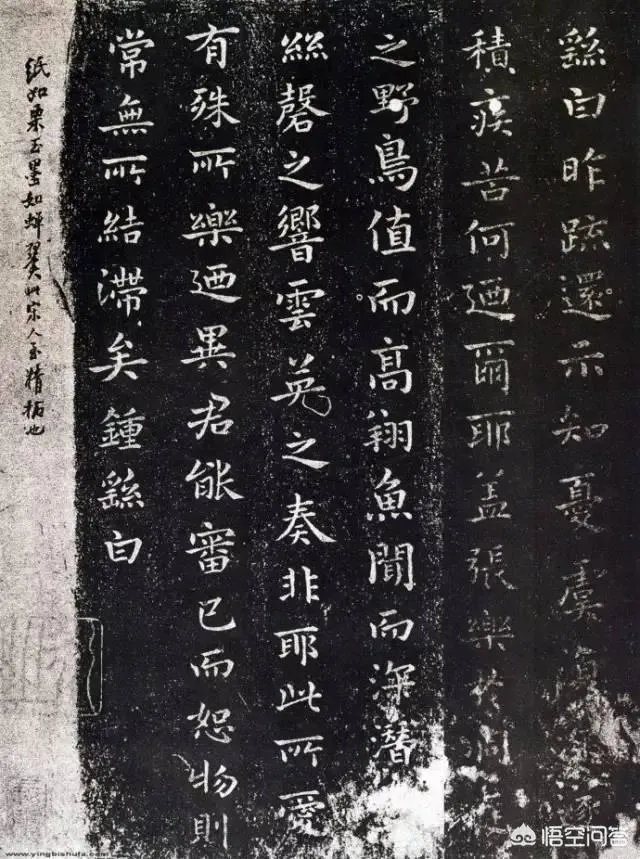 繇白昨疏還示知憂虞復深遂
積疾苦何迺爾耶盖張樂於洞庭
之野鳥值而高翔魚聞而深潛
絲磬之響雲英之奏非耶此所愛
有殊所樂迺異君能審己而恕物則
常無所結滯矣鍾繇白
紙如栗玉墨如蟬翼此宋人至精拓也
www.yingbishufa.com
悟空问答